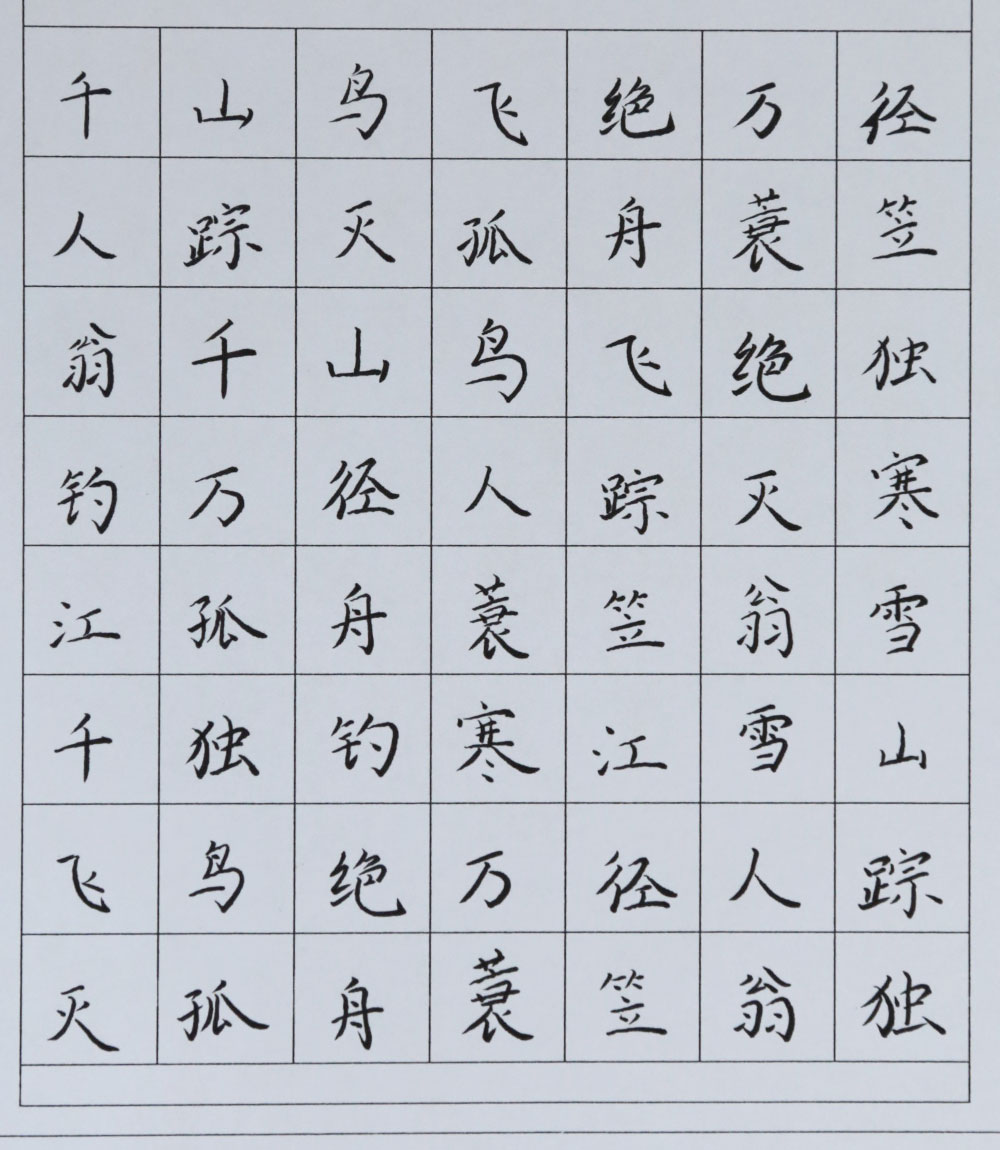 千山鸟飞绝万径
人踪灭孤舟蓑笠
翁千山鸟飞绝独
钓万径人踪灭寒
江孤舟蓑笠翁雪
千独钓寒江雪山
飞鸟绝万径人踪
灭孤舟蓑笠翁独